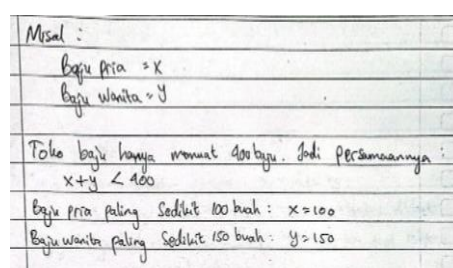 Misal :
Baju pria = x
Baju wanita = y
Toko baju hanya memuat 400 baju. Jadi persamaannya :
x+y < 400
Baju pria paling sedikit 100 buah : x = 100
Baju wanita paling sedikit 150 buah : y = 150